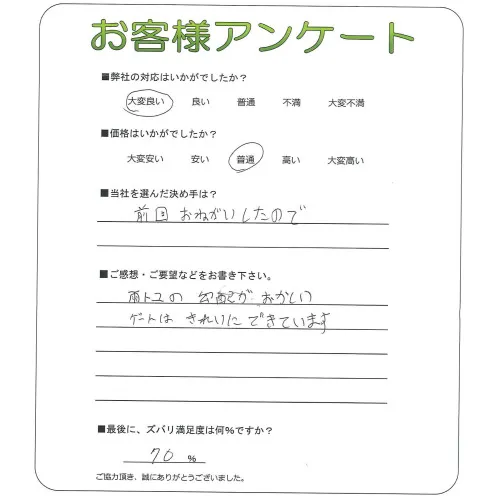 お客様アンケート
■弊社の対応はいかがでしたか?
大変良い 良い 普通 不満 大変不満
■価格はいかがでしたか?
大変安い 安い 普通 高い 大変高い
■当社を選んだ決め手は?
前回おねがいしたので
■ご感想・ご要望などをお書き下さい。
雨トユの勾配がおかしい
ゲートはきれいにできています
■最後に、ズバリ満足度は何%ですか?
70 %
ご協力頂き、誠にありがとうございました。